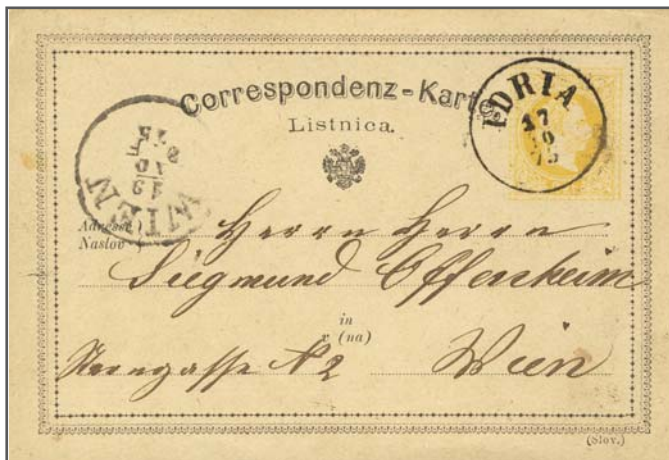 Correspondenz-Karte
Listnica.
IDRIA
17
10
75
WIEN
19
10
Adresse
Naslov
Herrn Herrn
Siegmund Offersheim
in
v (na)
Sterngasse N 2 Wien
(Slov.)